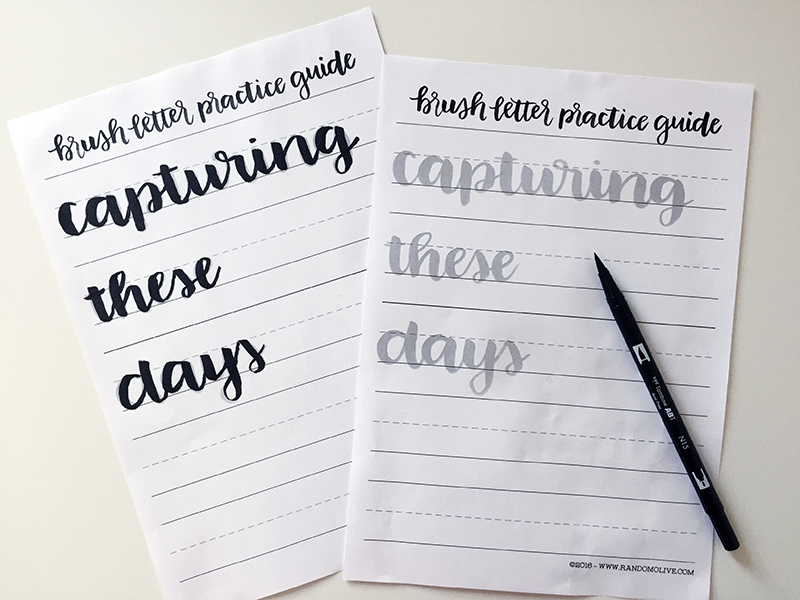 brush letter practice guide
capturing
these
days
brush letter practice guide
capturing
these
days
Tombow ABT N15
©2016 - WWW.RANDOMOLIVE.COM